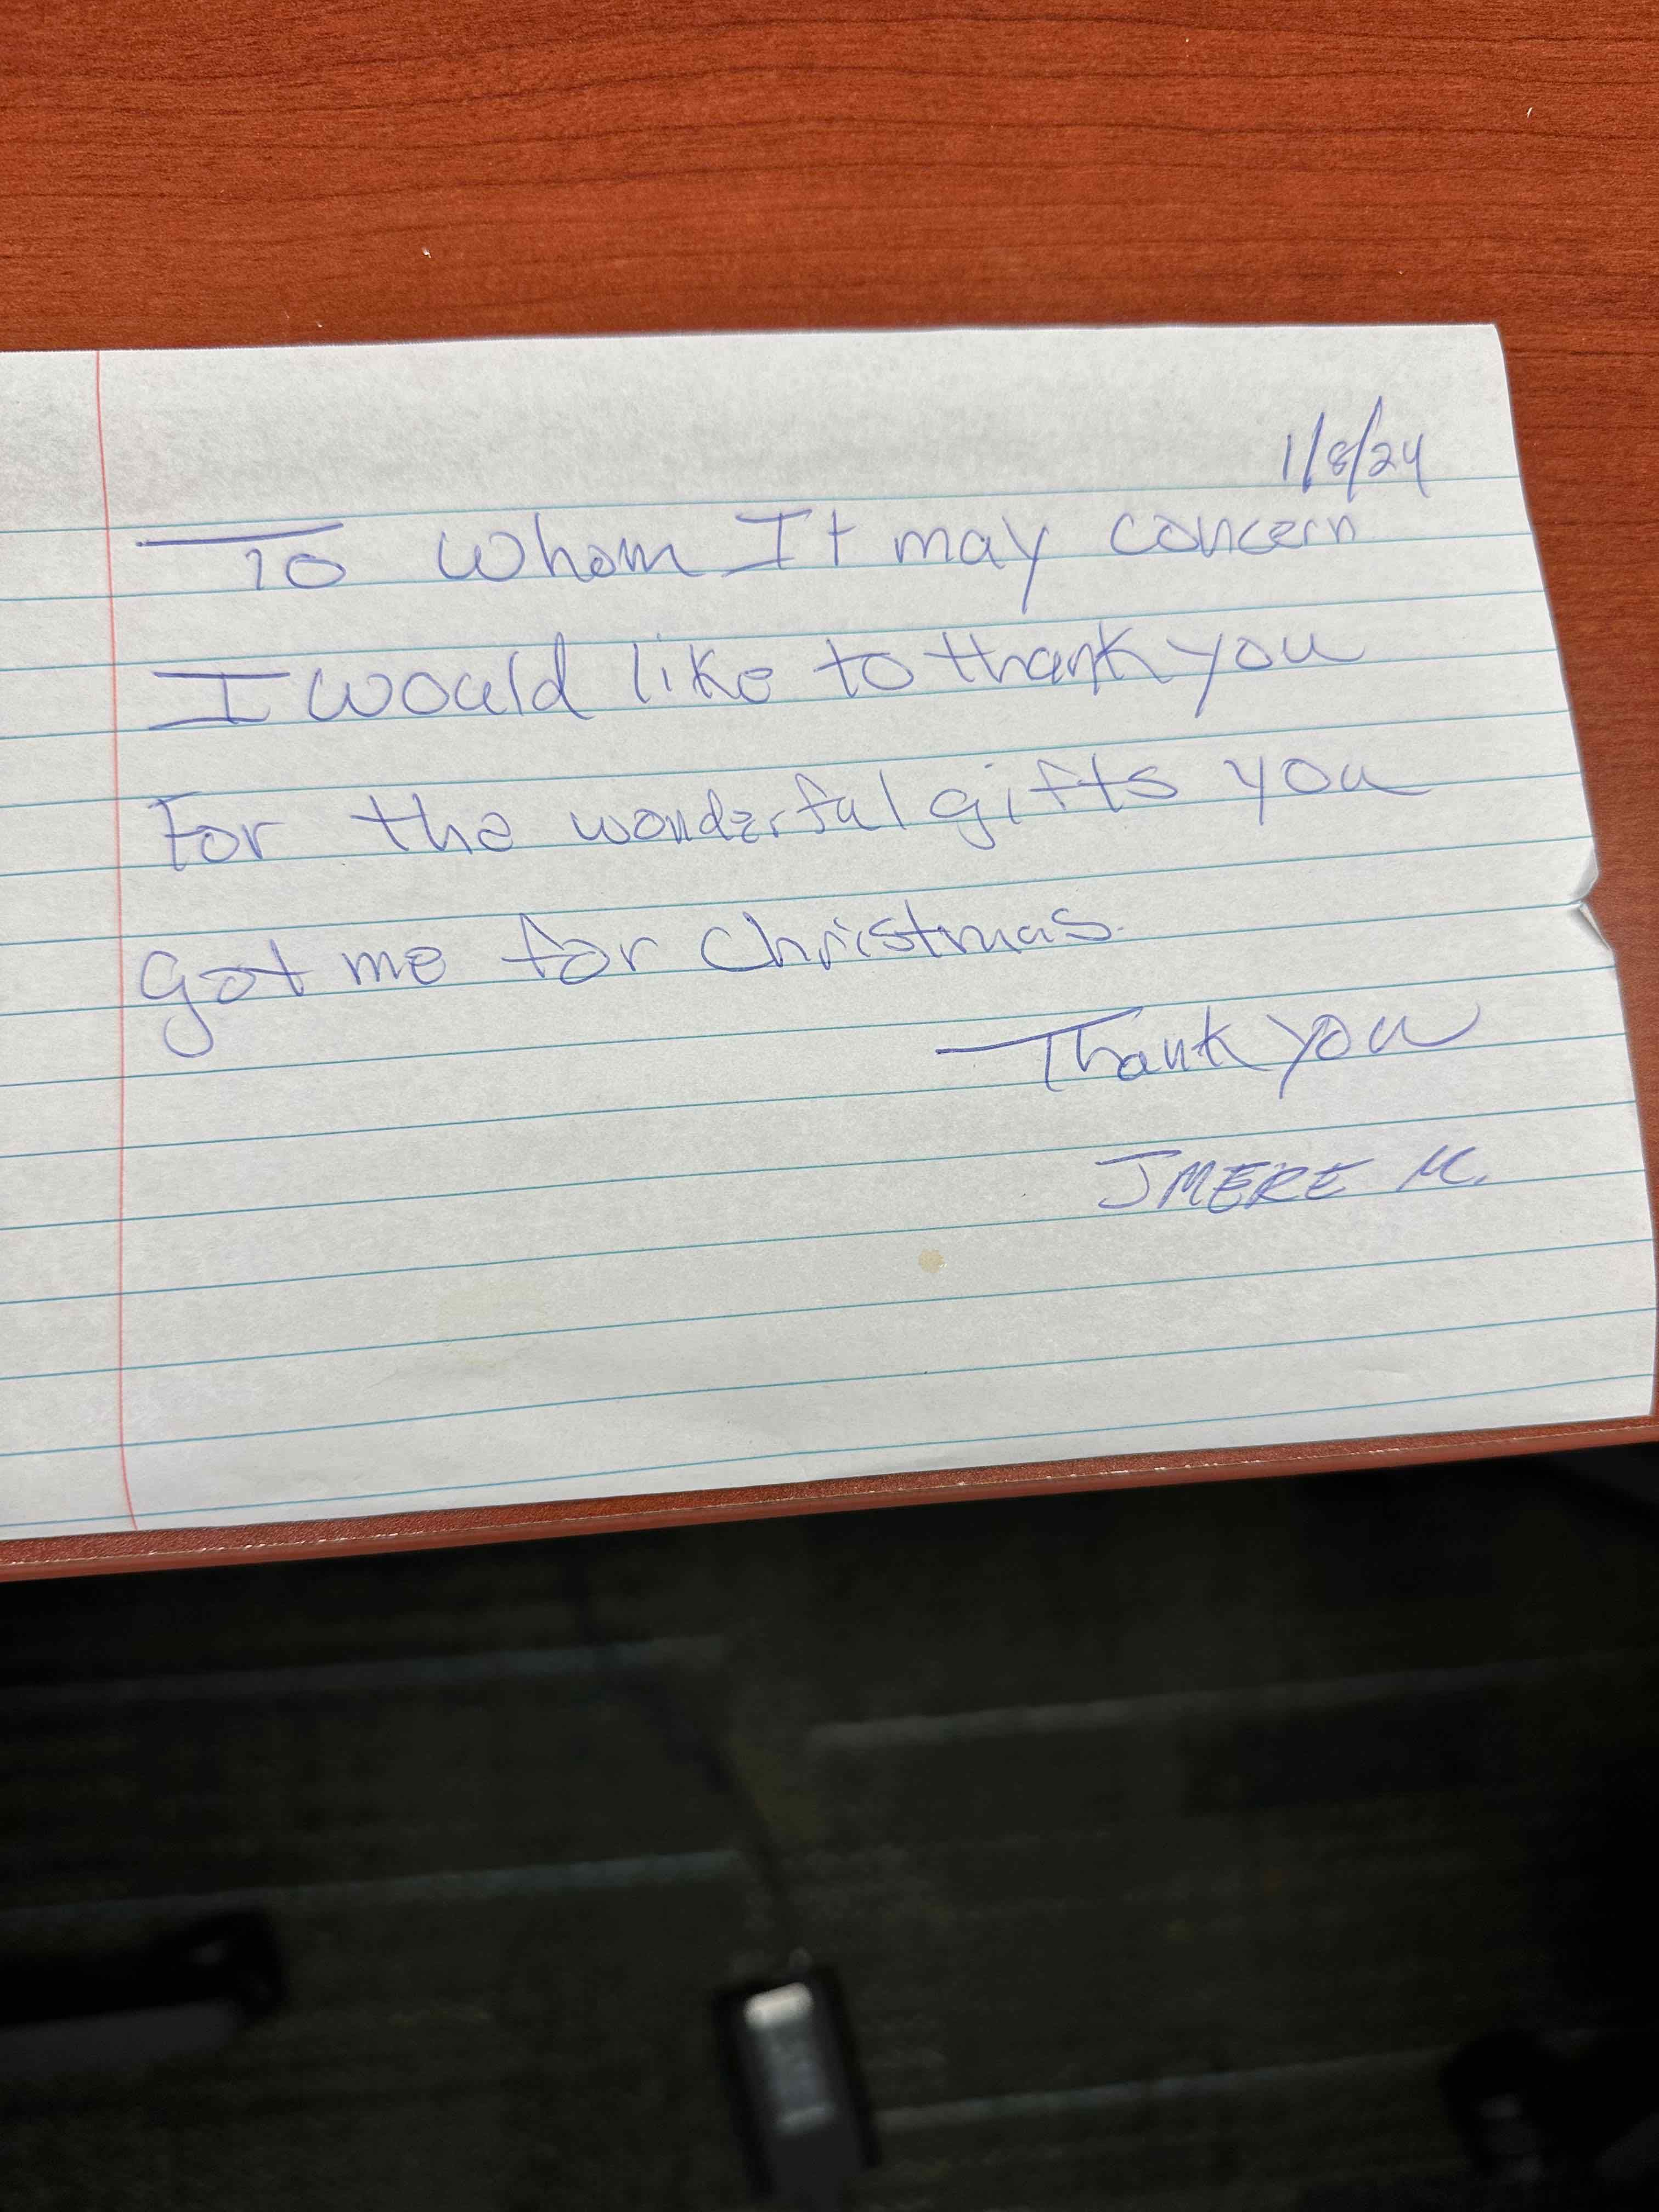 1/8/24
To Whom It may concern
I would like to thank you
For the wonderful gifts you
got me for Christmas.
Thank you
JMERE M.